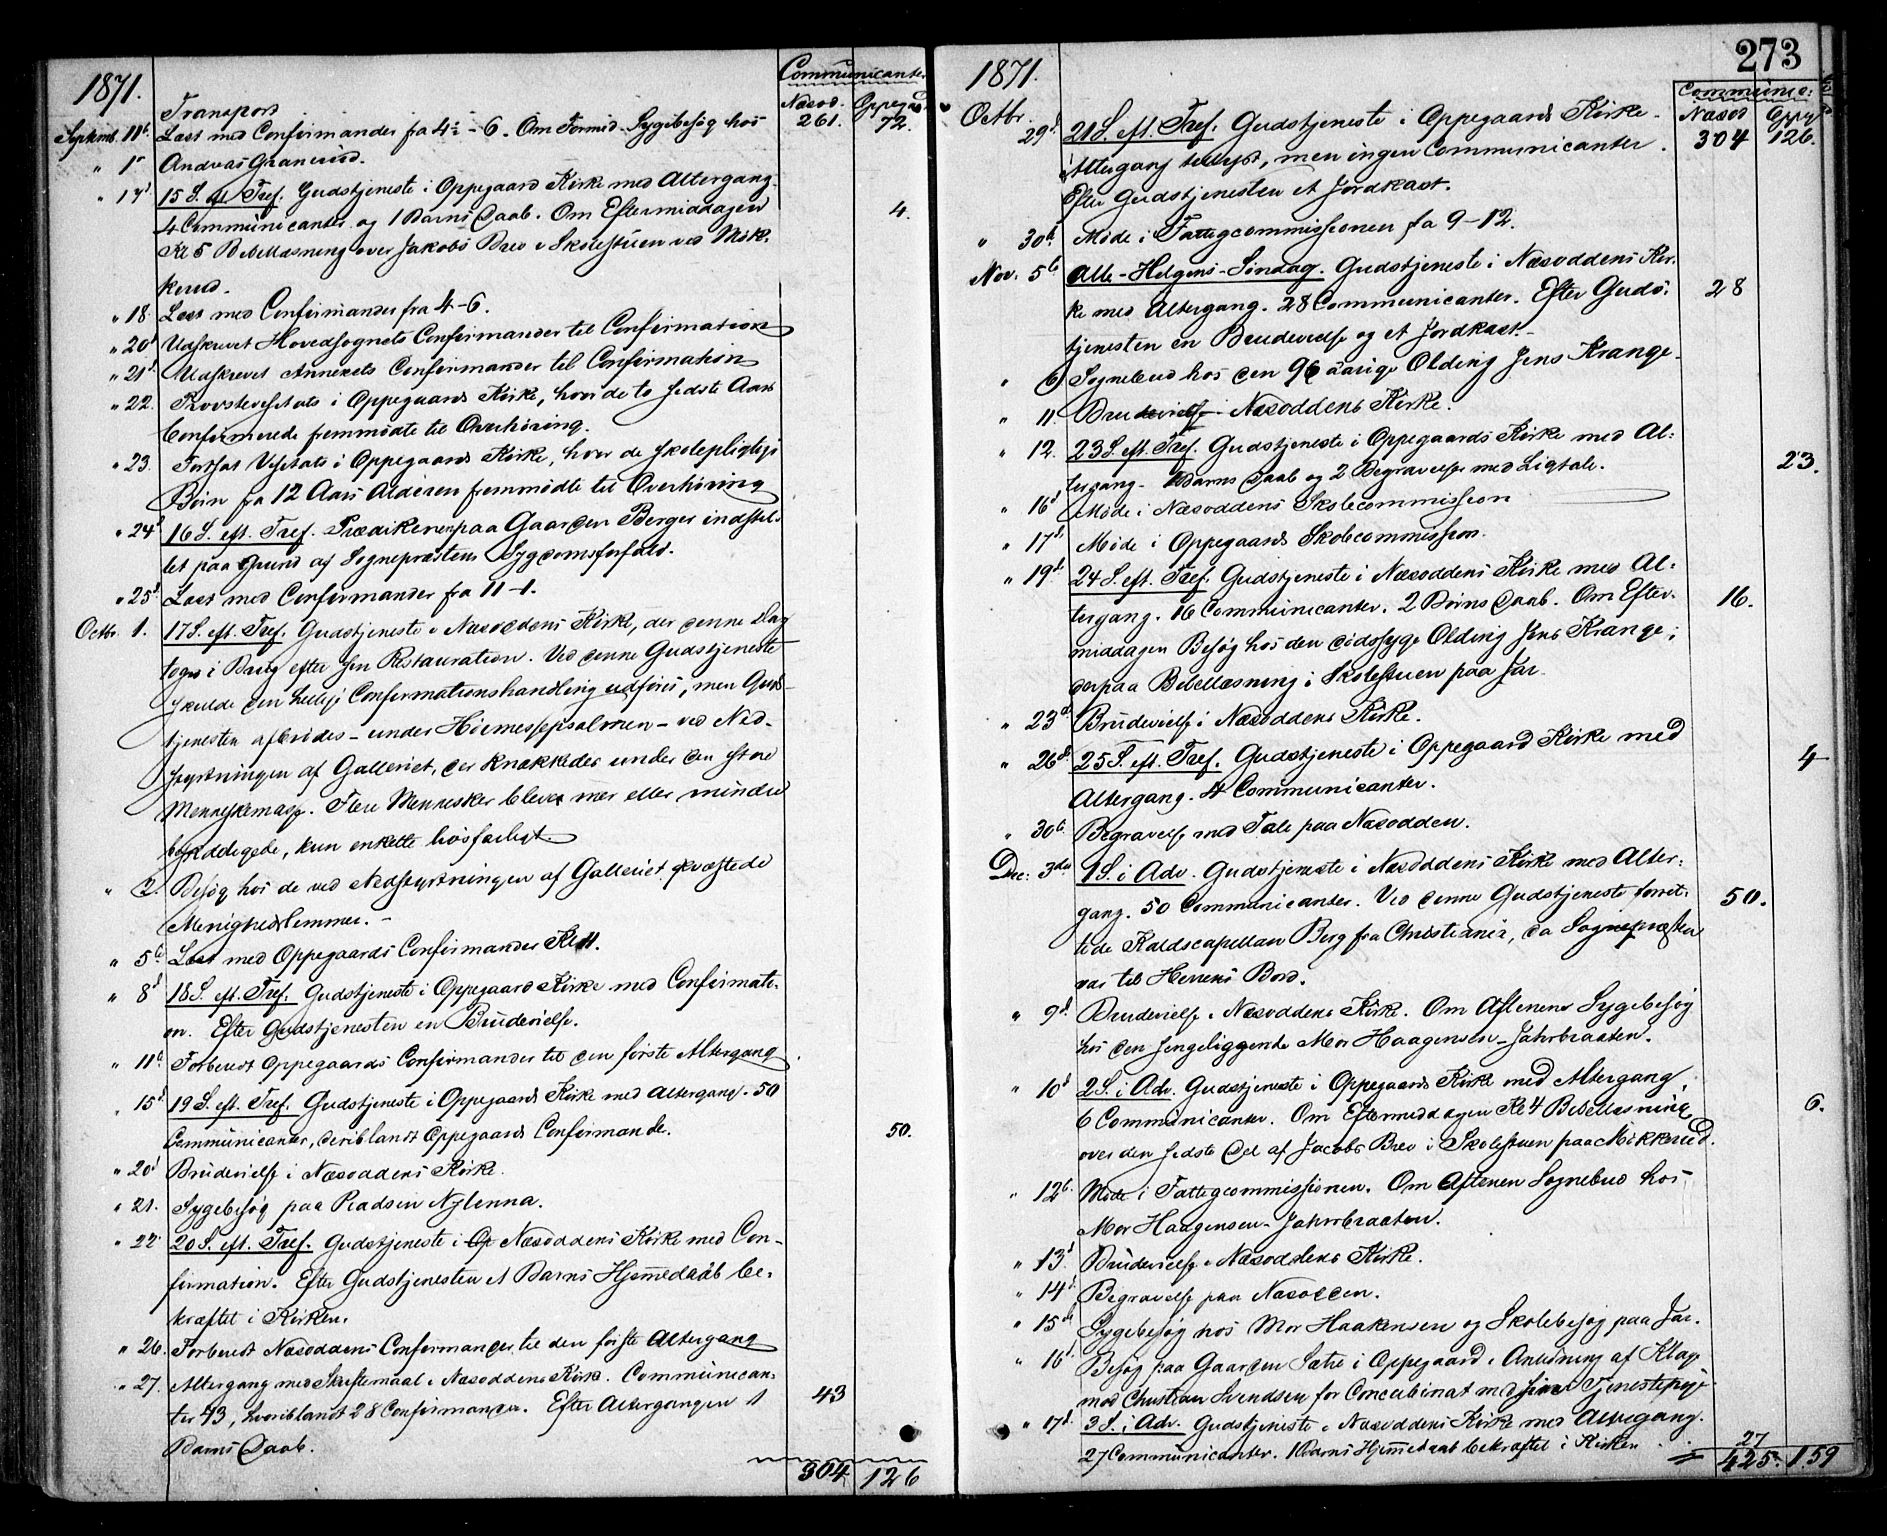 1871.
Communicanter
Næsod. Oppegd
Transport 261. 72.
Septemb. 11te Læst med Confirmander fra 4½-6. Om Formid. Sygebesøg hos
" 1 Andreas Granerud.
" 17d 15 S. ef Tref. Gudstjeneste i Oppegaard Kirke med Altergang.
4 Communicanter og 1 Barns Daab. Om Eftermiddagen 4.
Kl 5 Bibellæsning over Jakobs Brev i Skolestuen ved Møk-
kerud.
" 18. Læst med Confirmander fra 4-6.
" 20d Udskrevet Hovedsognets Confirmander til Confirmation
" 21d Udskrevet Annexets Confirmander til Confirmation
" 22. Provstevisitats i Oppegaards Kirke, hvor de to sidste Aars
Confirmerede fremmødte til Overhøring.
" 23. Fortsat Visitats i Oppegaards Kirke, hvor de skolepligtige
Børn fra 12 Aars Alderen fremmødte til Overhøring
" 24d 16 S. eft. Tref. Prædikenen paa Gaarden Berger indstil-
let paa Grund af Sognepræstens Sygdomsforfald.
" 25d Læst med Confirmander fra 11-1.
Octbr. 1. 17 S. eft. Tref. Gudstjeneste i Næsoddens Kirke, der denne Dag
toges i Brug efter sin Restauration. Ved denne Gudstjeneste
skulde den hellige Confirmationshandling udføres, men Guds-
tjenesten afbrødes - under Høimessepsalmen - ved Ned-
styrtningen af Galleriet, der knækkedes under den store
Menneskemasse. Flere Mennesker bleve mer eller mindre
beskadigede, kun enkelte livsfarligt.
" 2. Besøg hos de ved Nedstyrtningen af Galleriet qvæstede
Menighedslemmer. -
" 5te Læst med Oppegaards Confirmander Kl 11.
" 8d 18 S. eft. Tref. Gudstjeneste i Oppegaard Kirke med Confirmati-
on. Efter Gudstjenesten en Brudevielse.
" 11te Forberedt Oppegaards Confirmander til den første Altergang
" 15d 19 S. eft. Tref. Gudstjeneste i Oppegaards Kirke med Altergang. 50
Communicanter, deriblandt Oppegaards Confirmande. 50.
" 20d Brudevielse i Næsoddens Kirke.
" 21. Sygebesøg paa Pladsen Nylenna.
" 22 20 S. eft. Tref. Gudstjeneste i Op Næsoddens Kirke med Con-
firmation. Efter Gudstjenesten et Barns Hjemmedaab be-
kræftet i Kirken.
" 26. Forberedt Næsoddens Confirmander til den første Altergang
" 27. Altergang med Skriftemaal i Næsoddens Kirke. Communican-
ter 43, hvoriblandt 28 Confirmander. Efter Altergangen 1 43
Barns Daab.
304 126
273
1871.
Communic:
Næsod Oppg
304 126.
Octbr. 29d 21 S. eft. Tref. Gudstjeneste i Oppegaards Kirke.
Altergang tillyst, men ingen Communicanter.
Efter Gudstjenesten et Jordkast.
" 30te Møde i Fattigcommissionen fra 9-12.
Nov. 5te Alle-Helgens-Søndag. Gudstjeneste i Næsoddens Kir-
ke med Altergang. 28 Communicanter. Efter Guds- 28
tjenesten en Brudevielse og et Jordkast-
" 6 Sognebud hos den 96 aarige Olding Jens Krange.
" 11 Brudevielse i Næsoddens Kirke.
" 12. 23 S. eft. Tref. Gudstjeneste i Oppegaards Kirke med Al-
tergang. Barns Daab og 2 Begravelser med Ligtale. 23.
" 16d Møde i Næsoddens Skolecommission
" 17d Møde i Oppegaards Skolecommission.
" 19d 24 S. eft. Tref. Gudstjeneste i Næsoddens Kirke med Al-
tergang. 16 Communicanter. 2 Børns Daab. Om Efter- 16.
middagen Besøg hos den dødssyge Olding Jens Krange;
derpaa Bibellæsning i Skolestuen paa Jar.
" 23d Brudevielse i Næsoddens Kirke.
" 26d 25 S. eft. Tref. Gudstjeneste i Oppegaard Kirke med 4
Altergang. 4 Communicanter.
" 30te Begravelse med Tale paa Næsodden.
Dec: 3die 1 S. i Adv. Gudstjeneste i Næsoddens Kirke med Alter-
gang. 50 Communicanter. Ved denne Gudstjeneste forret- 50.
tede Kaldscapellan Berg fra Christiania, da Sognepræsten
var til Herrens Bord.
" 9d Brudevielse i Næsoddens Kirke. Om Aftenen Sygebesøg
hos den sengeliggende Mor Haagensen-Jahrbraaten.
" 10d 2 S. i Adv. Gudstjeneste i Oppegaards Kirke med Altergang.
6 Communicanter. Om Eftermiddagen Kl 4 Bibellæsning 6.
over den sidste Del af Jacobs Brev i Skolestuen paa Møkkerud.
" 12te Møde i Fattigcommissionen. Om Aftenen Sognebud hos
Mor Haagensen-Jahrbraaten.
" 13d Brudevielse i Næsoddens Kirke.
" 14d Begravelse paa Næsodden.
" 15d Sygebesøg hos Mor Haakensen og Skolebesøg paa Jar.
" 16d Besøg paa Gaarden Sætre i Oppegaard i Anledning af Klage
mod Christian Svendsen for Concubinat med sin Tjenestepige
" 17d. 3 S. i Adv. Gudstjeneste i Næsoddens Kirke med Altergang.
27 Communicanter. 1 Barns Hjemmedaab bekræftet i Kirken 27
425. 159